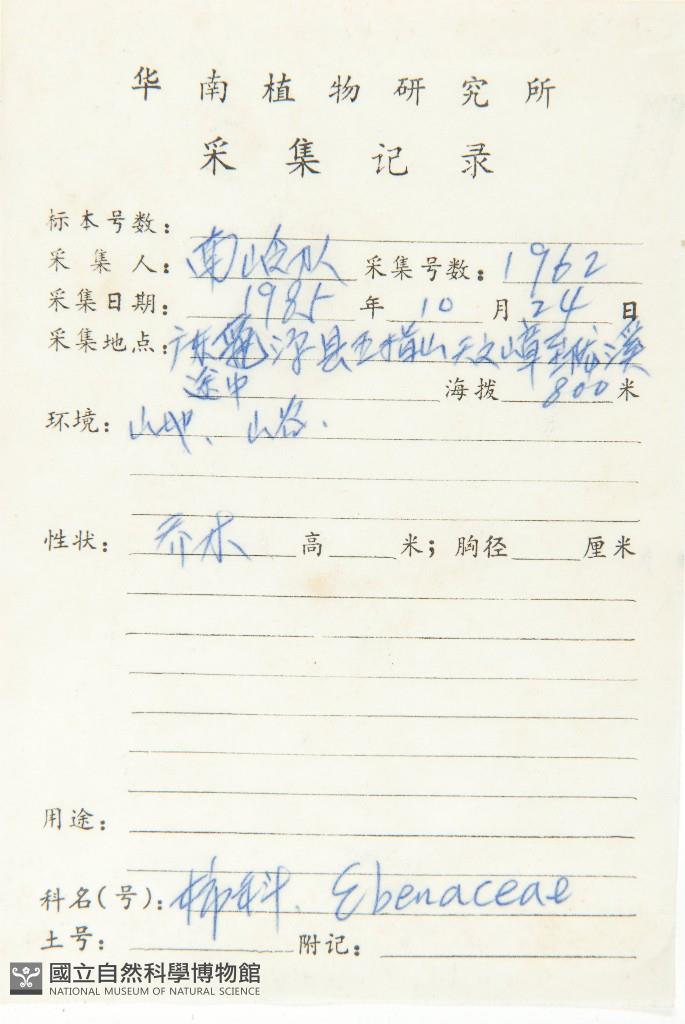 华南植物研究所
采集记录
标本号数:
采集人: 南岭队 采集号数: 1962
采集日期: 1985 年 10 月 24 日
采集地点: 广东 源县五指山天文嶂 溪
途中 海拨 800 米
环境: 山地、山谷.
性状: 乔木 高 米; 胸径 厘米
用途:
科名(号): 柿科、Ebenaceae
土号: 附记:
國立自然科學博物館
NATIONAL MUSEUM OF NATURAL SCIENCE